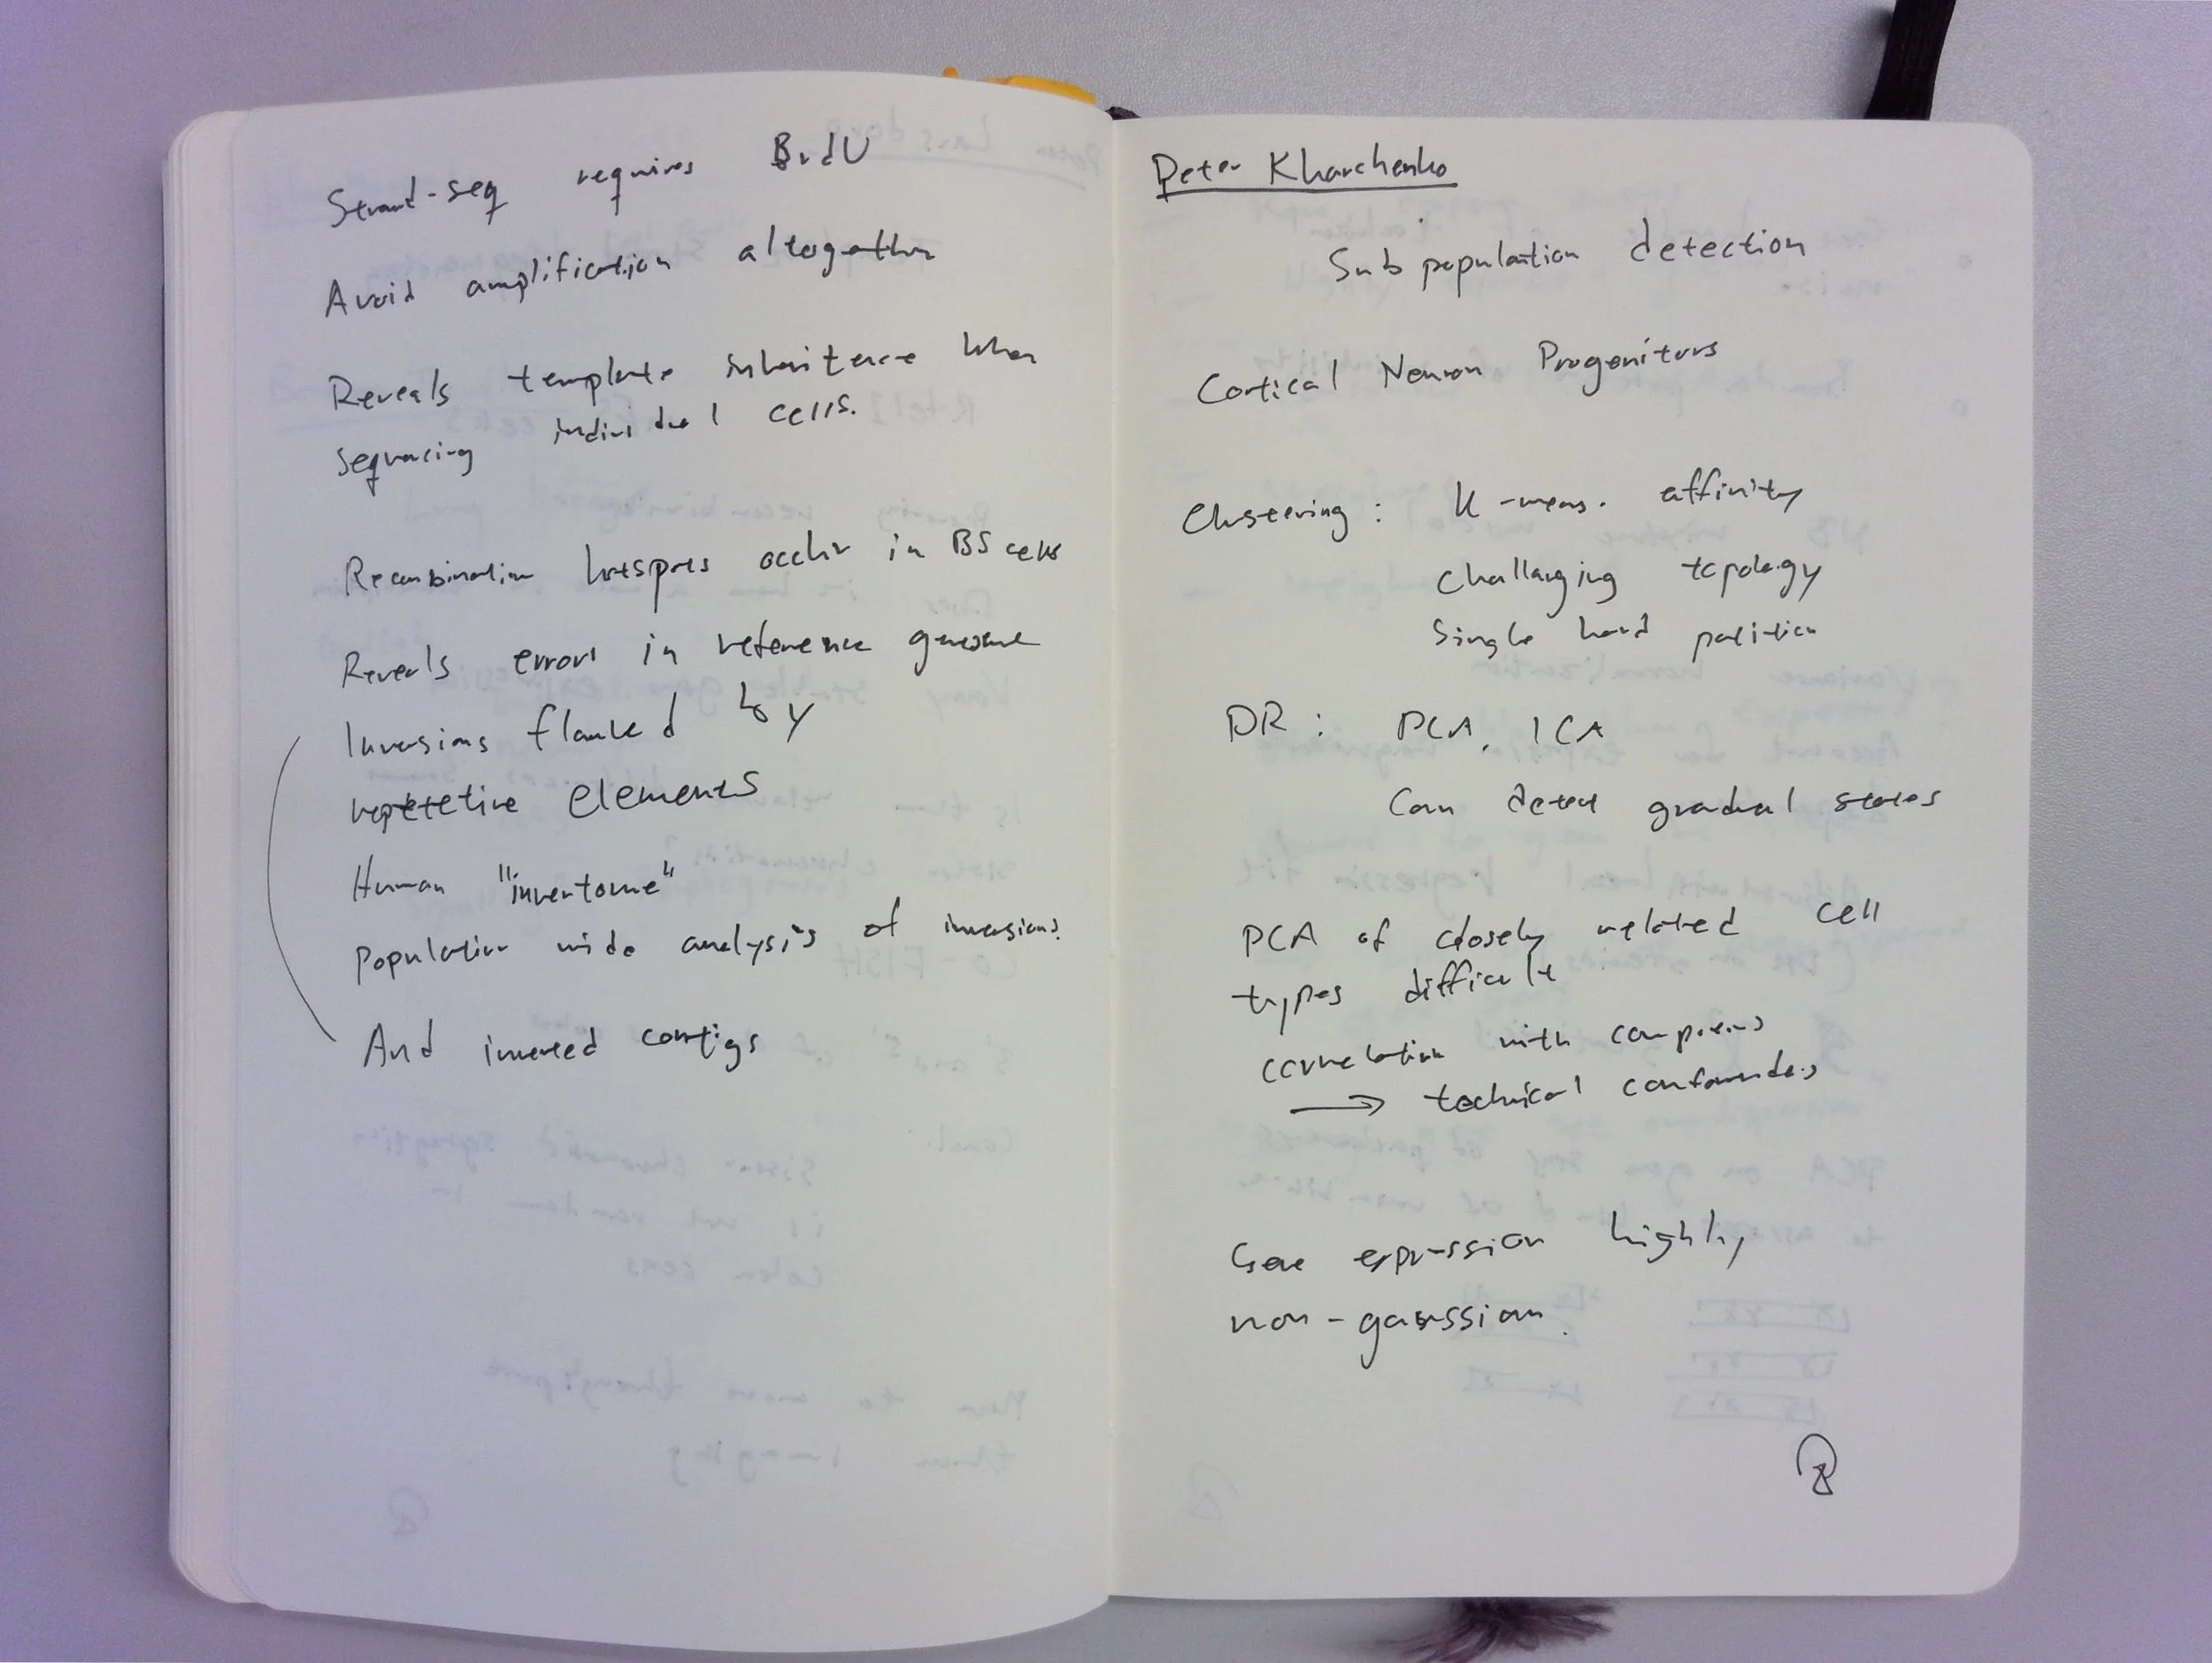 Strand-seq requires BrdU
Avoid amplification altogether
Reveals template inheritence when
sequencing individual cells.
Recombination hotspots occur in BS cells
Reveals errors in reference genome
Inversions flanked by
repetetive elements
Human "inventome"
Population wide analysis of inversions.
And inverted contigs
Peter Kharchenko
Subpopulation detection
Cortical Neuron Progenitors
Clustering: K-means. affinity
Challanging topology
Single hard partition
DR: PCA, ICA
Can detect gradual states
PCA of closely related cell
types difficult
correlation with
→ technical confounders
Gene expression highly
non-gaussian.